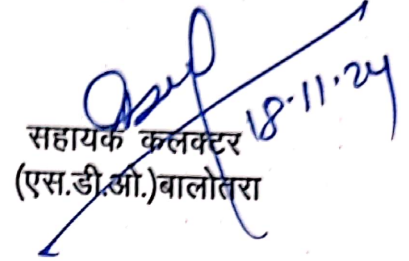 18.11.24
सहायक कलक्टर
(एस.डी.ओ.)बालोतरा